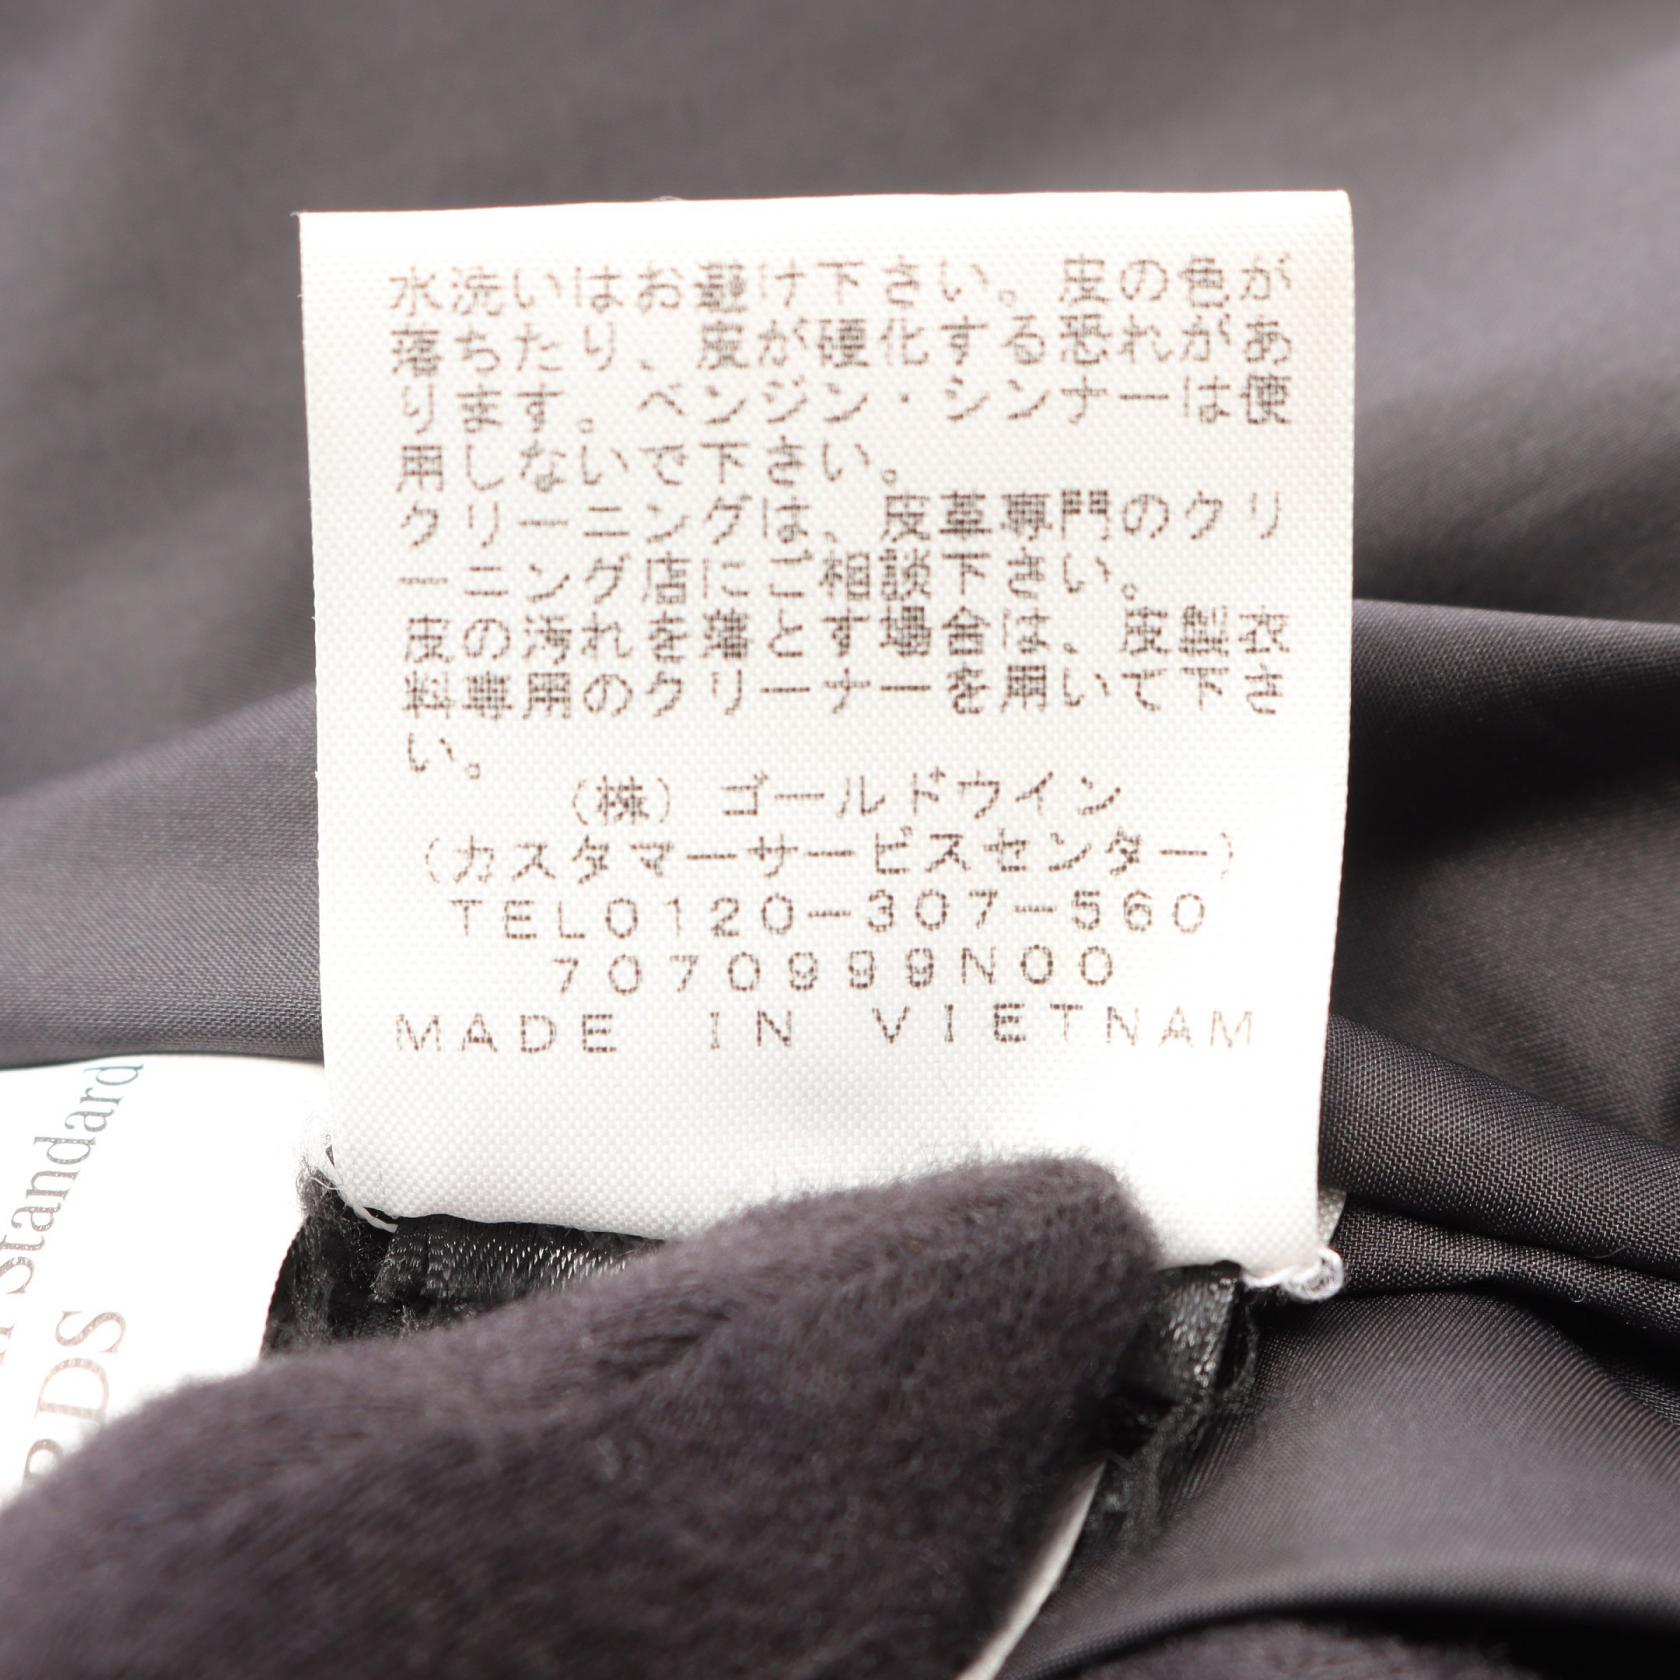 水洗いはお避け下さい。皮の色が
落ちたり、皮が硬化する恐れがあ
ります。ベンジン・シンナーは使
用しないで下さい。
クリーニングは、皮革専門のクリ
ーニング店にご相談下さい。
皮の汚れを落とす場合は、皮製衣
料専用のクリーナーを用いて下さ
い。
(株) ゴールドウイン
(カスタマーサービスセンター)
TEL0120-307-560
7070999N00
MADE IN VIETNAM
Standard
RDS